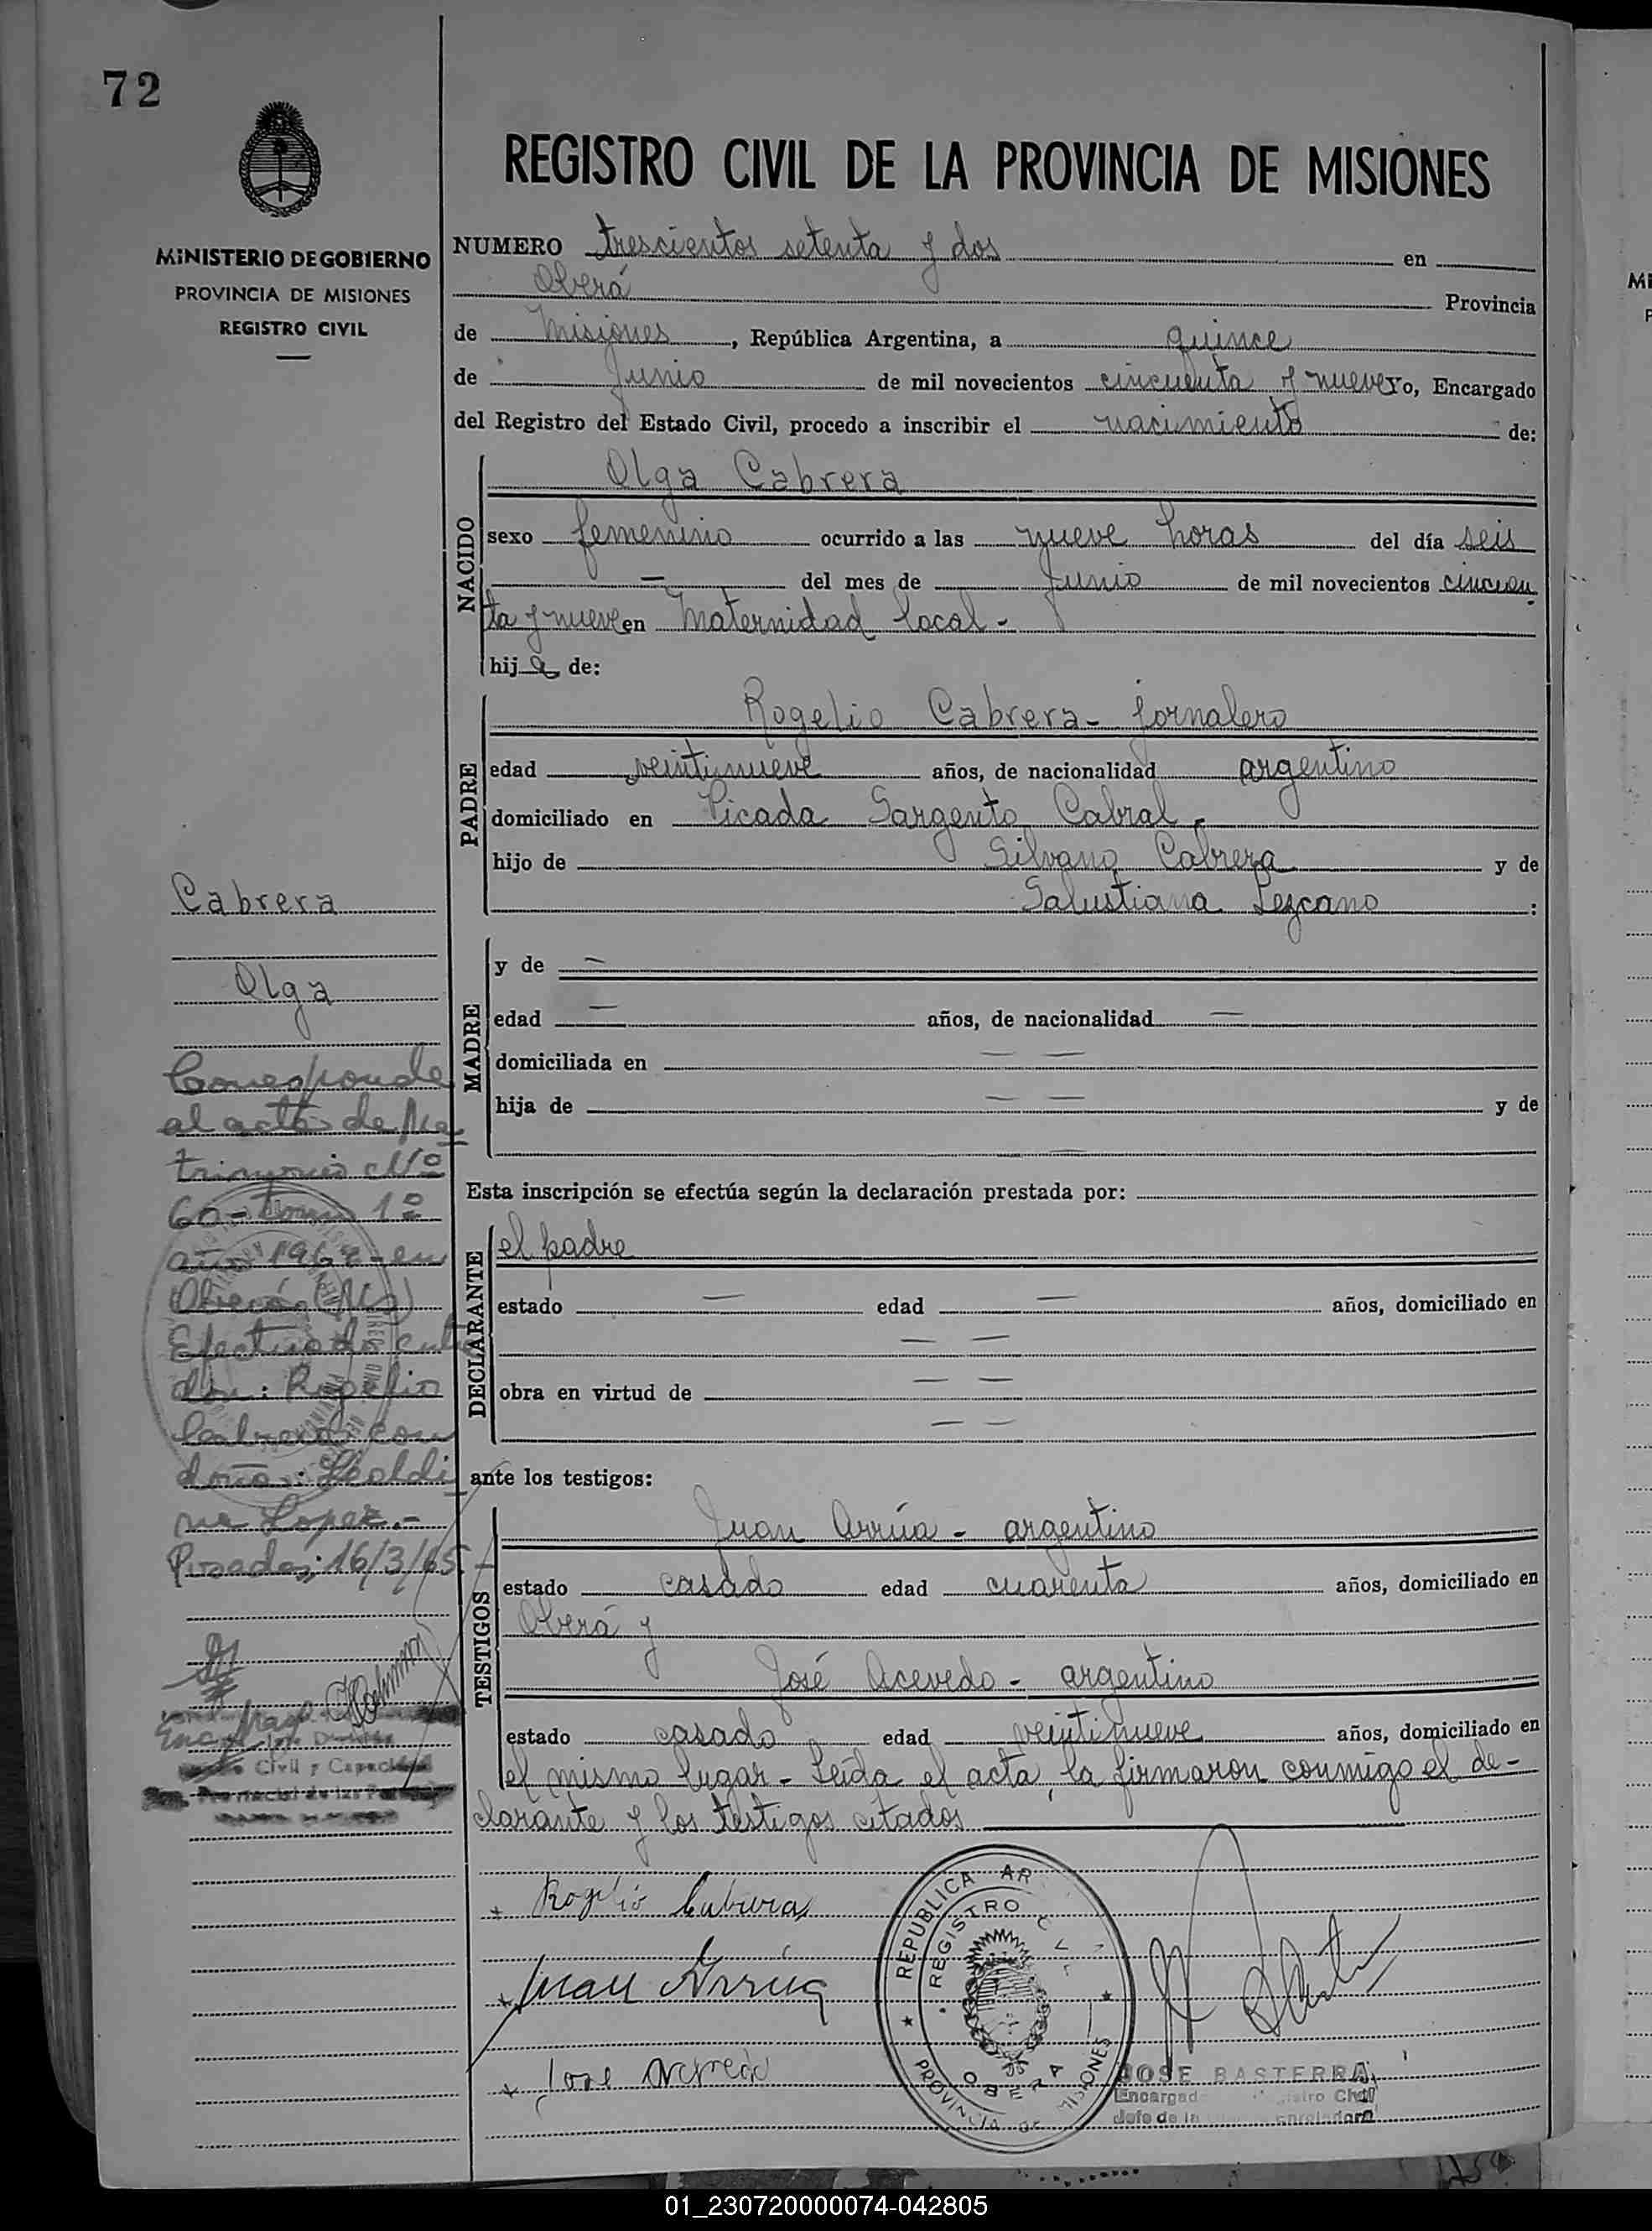 72
MINISTERIO DE GOBIERNO
PROVINCIA DE MISIONES
REGISTRO CIVIL
REGISTRO CIVIL DE LA PROVINCIA DE MISIONES
NUMERO trescientos setenta y dos en
Oberá Provincia
de Misiones, República Argentina, a quince
de Junio de mil novecientos cincuenta y nueve Yo, Encargado
del Registro del Estado Civil, procedo a inscribir el nacimiento de:
NACIDO
Olga Cabrera
sexo femenino ocurrido a las nueve horas del día seis
— del mes de Junio de mil novecientos cincuen
ta y nueve en Maternidad local -
hija de:
PADRE
Rogelio Cabrera - jornalero
edad veintinueve años, de nacionalidad argentino
domiciliado en Picada Sargento Cabral -
hijo de Silvano Cabrera y de
Salustiana Lezcano :
MADRE
y de —
edad — años, de nacionalidad —
domiciliada en — —
hija de — — y de
— —
Esta inscripción se efectúa según la declaración prestada por:
DECLARANTE
el padre
estado — edad — años, domiciliado en
— —
obra en virtud de — —
— —
ante los testigos:
TESTIGOS
Juan Arrúa - argentino
estado casado edad cuarenta años, domiciliado en
Oberá y
José Acevedo - argentino
estado casado edad veintinueve años, domiciliado en
el mismo lugar - Leída el acta, la firmaron conmigo el de-
clarante y los testigos citados
Rogelio Cabrera
Juan Arrúa
Jose
REPUBLICA AR
REGISTRO CIVI
OBERA
PROVINCIA DE MISIONES
JOSE BASTERRA
Encargad istro Civil
Jefe de la enroladora
Cabrera
Olga
Corresponde
al acta de Ma
trimonio Nº
60 - Tomo 1º
año 196 en
Oberá (Ms)
Efectuado ent
don: Rogelio
Cabrera con
doña: Leoldi
na Lopez.-
Posadas; 16/3/65
Civil y Capacidad
01_230720000074-042805